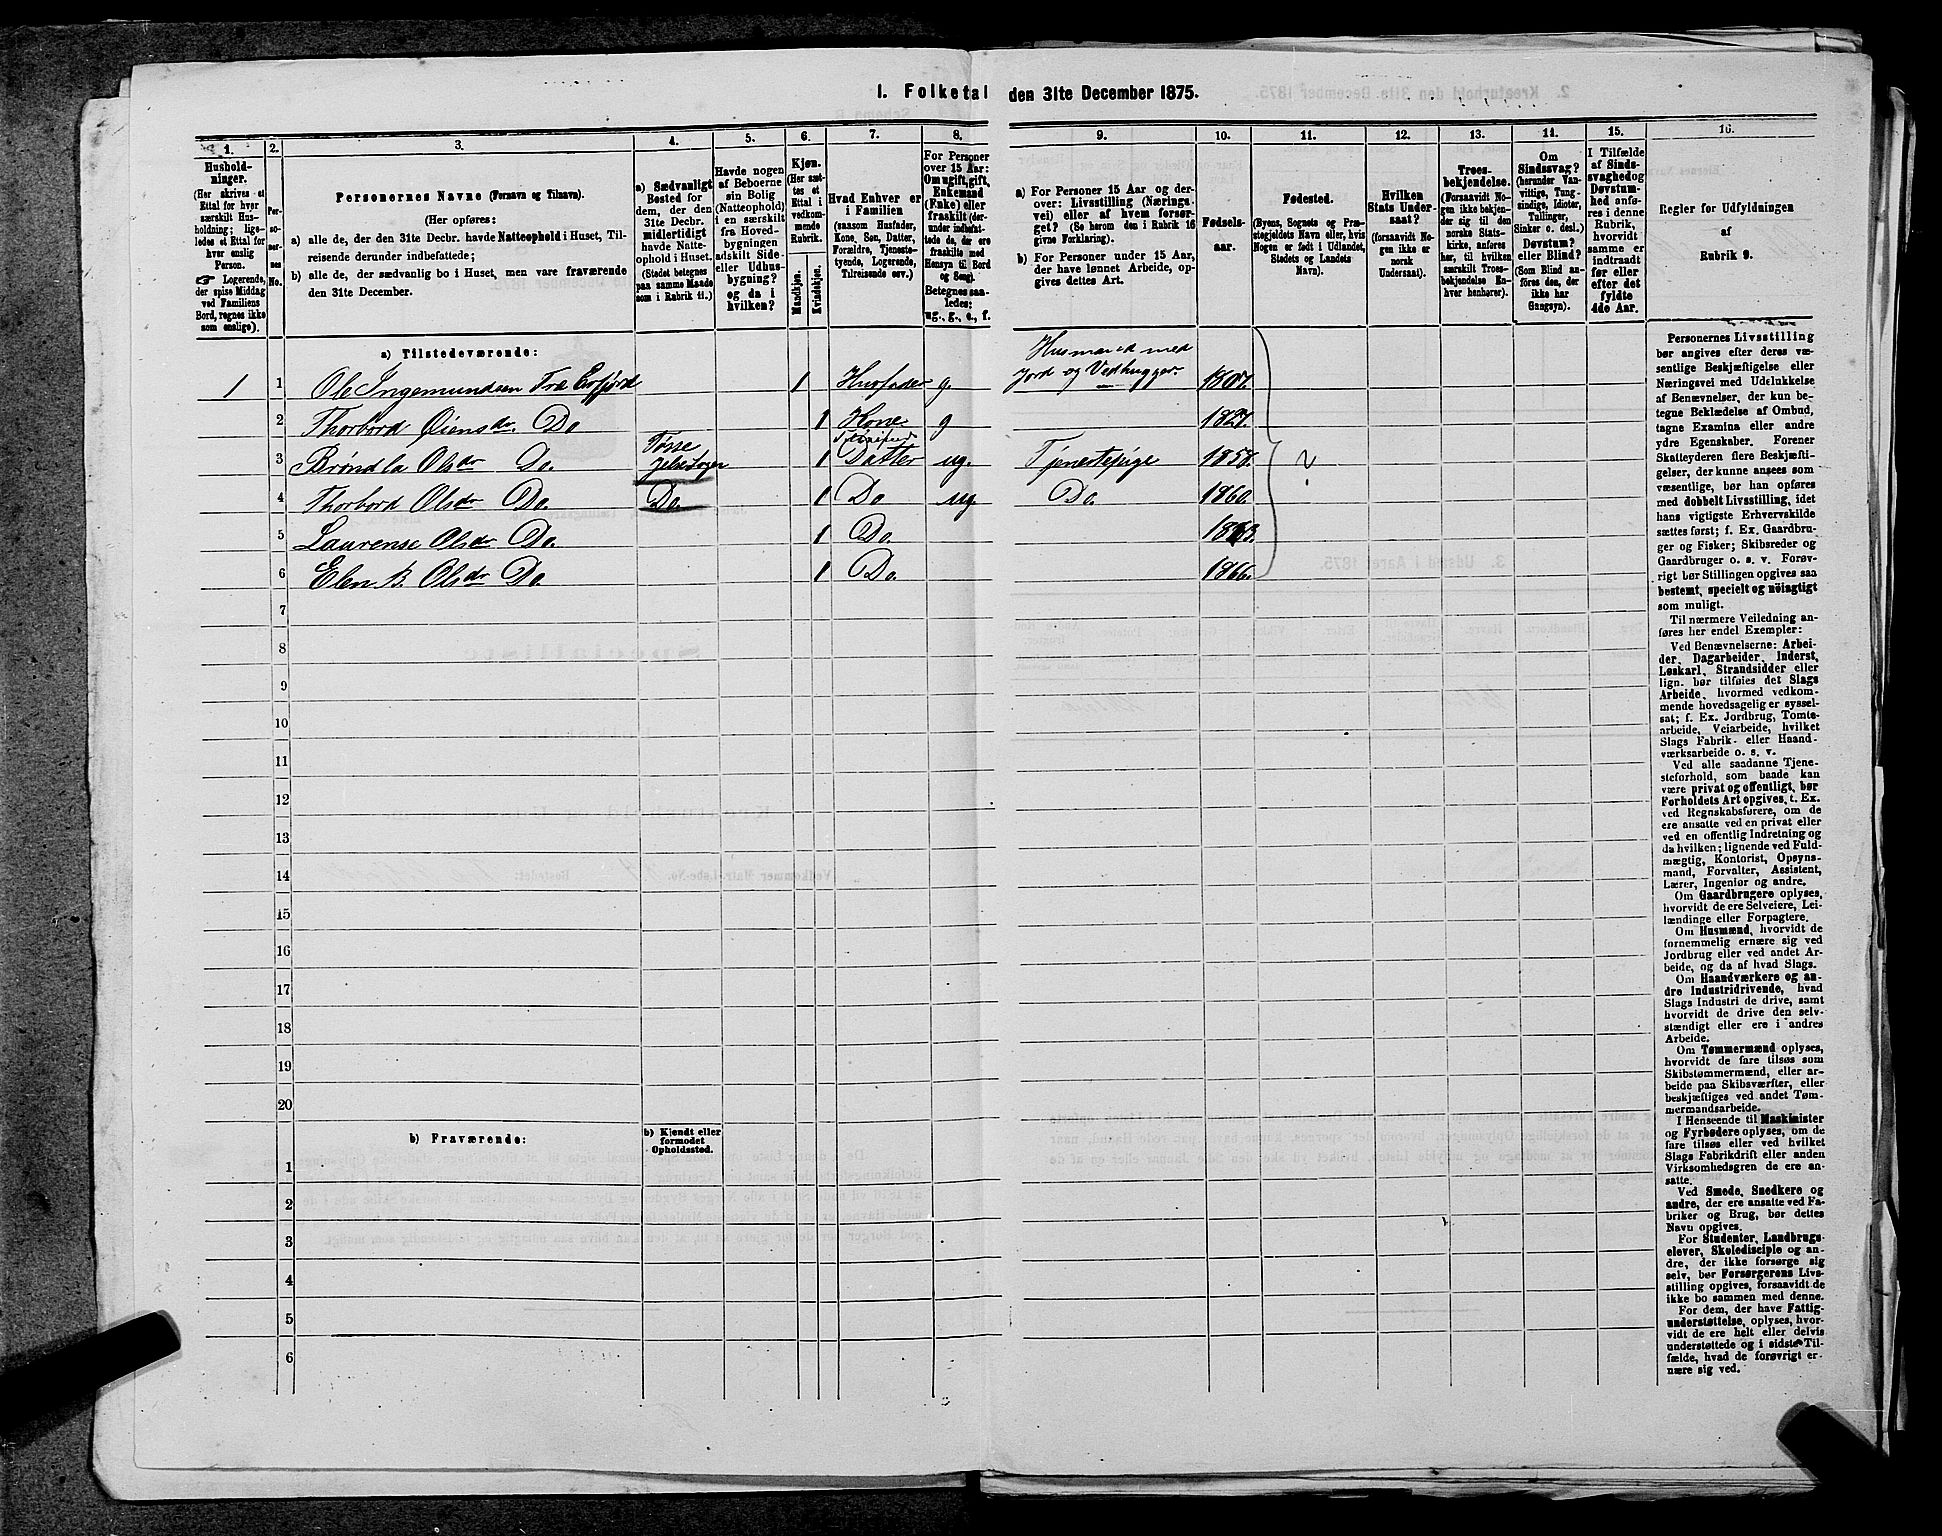 I. Folketal den 31te December 1875.
1.
2.
3.
4.
5.
6.
7.
8.
9.
10.
11.
12.
13.
14.
15.
16.
Hushold-
ninger.
(Her skrives et
Ettal for hver
særskilt Hus-
holdning; lige-
ledes et Ettal for
hver enslig
Person.
☞ Logerende,
der spise Middag
ved Familiens
Bord, regnes ikke
som enslige).
Per-
so-
ner-
nes
No.
Personernes Navne (Fornavn og Tilnavn).
(Her opføres:
a) alle de, der den 31te Decbr. havde Natteophold i Huset, Til-
reisende derunder indbefattede;
b) alle de, der sædvanlig bo i Huset, men vare fraværende
den 31te December.
a) Sædvanligt
Bosted for
dem, der den
31te Decbr.
midlertidigt
havde Natte-
ophold i Huset.
(Stedet betegnes
paa samme Maade
som i Rubrik 11.)
Havde nogen
af Beboerne
sin Bolig
(Natteophold)
i en særskilt
fra Hoved-
bygningen
adskilt Side-
eller Udhus-
bygning?
og da i
hvilken?
Kjøn.
(Her sæt-
tes et
Ettal i
vedkom-
mende
Rubrik.
Mandkjøn.
Kvindekjøn.
Hvad Enhver er
i Familien
(saasom Husfader,
Kone, Søn, Datter,
Forældre, Tjeneste-
tyende, Logerende,
Tilreisende osv.)
For Personer
over 15 Aar:
Om ugift, gift,
Enkemand
(Enke) eller
fraskilt (der-
under indbefat-
tede de, der ere
fraskilte med
Hensyn til Bord
og Seng).
Betegnes saa-
ledes:
ug., g., e., f.
a) For Personer 15 Aar og der-
over: Livsstilling (Nærings-
vei) eller af hvem forsør-
get? (Se herom den i Rubrik 16
givne Forklaring).
b) For Personer under 15 Aar,
der have lønnet Arbeide, op-
gives dettes Art.
Fødsels-
aar.
Fødested.
(Byens, Sognets og Præ-
stegjeldets Navn eller, hvis
Nogen er født i Udlandet,
Stedets og Landets
Navn).
Hvilken
Stats Under-
saat?
(forsaavidt No-
gen ikke er
norsk
Undersaat).
Troes-
bekjendelse.
(Forsaavidt No-
gen ikke bekjen-
der sig til den
norske Stats-
kirke, anføres
her, til hvilken
særskilt Troes-
bekjendelse En-
hver henhører).
Om
Sindssvag?
(herunder Van-
vittige, Tung-
sindige, Idioter,
Tullinger,
Sinker o. desl.)
Døvstum?
eller Blind?
(Som Blind an-
føres den, der
ikke har
Gangsyn).
I Tilfælde
af Sinds-
svaghed og
Døvstum-
hed anføres
i denne
Rubrik,
hvorvidt
samme er
indtraadt
før eller
efter det
fyldte
4de Aar.
Regler for Udfyldningen
af
Rubrik 9.
a) Tilstedeværende:
Husmand med
1 1 Ole Ingemundsen 1 Husfader g Jord og Vedhugger. 1807.
2 Thorbørd Do 1 Kone g 1827.
3 Brøndla Olsdr Do. 1 Datter ug. Tjenestepige 1858. ?
4 Thorbørd Olsdr Do. Do. 1 Do ug. Do. 1860.
5 Laurense Olsdr Do. 1 Do. 1863.
6 Elen B. Olsdr Do. 1 Do. 1866.
7
8
9
10
11
12
13
14
15
16
17
18
19
20
b) Fraværende:
b) Kjendt eller
formodet
Opholdssted.
1
2
3
4
5
6
Personernes Livsstilling
bør angives efter deres væ-
sentlige Beskjæftigelse eller
Næringsvei med Udelukkelse
af Benævnelser, der kun be-
tegne Beklædelse af Ombud,
tagne Examina eller andre
ydre Egenskaber. Forener
Skatteyderen flere Beskjæfti-
gelser, der kunne ansees som
væsentlige, bør han opføres
med dobbelt Livsstilling, idet
hans vigtigste Erhvervskilde
sættes først; f. Ex. Gaardbru-
ger og Fisker; Skibsreder og
Gaardbruger o. s. v. Forøv-
rigt bør Stillingen opgives saa
bestemt, specielt og nøiagtigt
som muligt.
Til nærmere Veiledning an-
føres her endel Exempler:
Ved Benævnelserne: Arbei-
der, Dagarbeider, Inderst,
Løskarl, Strandsidder eller
lign. bør tilføies det Slags
Arbeide, hvormed vedkom-
mende hovedsagelig er syssel-
sat; f. Ex. Jordbrug, Tomte-
arbeide, Veiarbeide, hvilket
Slags Fabrik- eller Haand-
værksarbeide o. s. v.
Ved alle saadanne Tjene-
steforhold, som baade kan
være privat og offentligt, bør
Forholdets Art opgives, t. Ex.
ved Regnskabsførere, om de
ere ansatte ved en privat eller
ved en offentlig Indretning og
da hvilken; lignende ved Fuld-
mægtig, Kontorist, Opsyns-
mand, Forvalter, Assistent,
Lærer, Ingeniør og andre.
Om Gaardbrugere oplyses,
hvorvidt de ere Selveiere, Lei-
lændinge eller Forpagtere.
Om Husmænd, hvorvidt de
fornemmelig ernære sig ved
Jordbrug eller ved andet Ar-
beide, og da af hvad Slags.
Om Haandværkere og an-
dre Industridrivende, hvad
Slags Industri de drive, samt
hvorvidt de drive den selv-
stændigt eller ere i andres
Arbeide.
Om Tømmermænd oplyses,
hvorvidt de fare tilsøs som
Skibstømmermænd, eller ar-
beide paa Skibsværfter, eller
beskjæftiges ved andet Tøm-
mermandsarbeide.
I Henseende til Maskinister
og Fyrbødere oplyses, om de
fare tilsøs eller ved hvilket
Slags Fabrikdrift eller anden
Virksomhedsgren de ere an-
satte.
Ved Smede, Snedkere og
andre, der ere ansatte ved Fa-
briker og Brug, bør dettes
Navn opgives.
For Studenter, Landbrugs-
elever, Skoledisciple og an-
dre, der ikke forsørge sig
selv, bør Forsørgerens Livs-
stilling opgives, forsaavidt de
ikke bo sammen med denne.
For dem, der have Fattig-
understøttelse, oplyses, hvor-
vidt de ere helt eller delvis
understøttede og i sidste Til-
fælde, hvad de forøvrigt er-
nære sig ved.